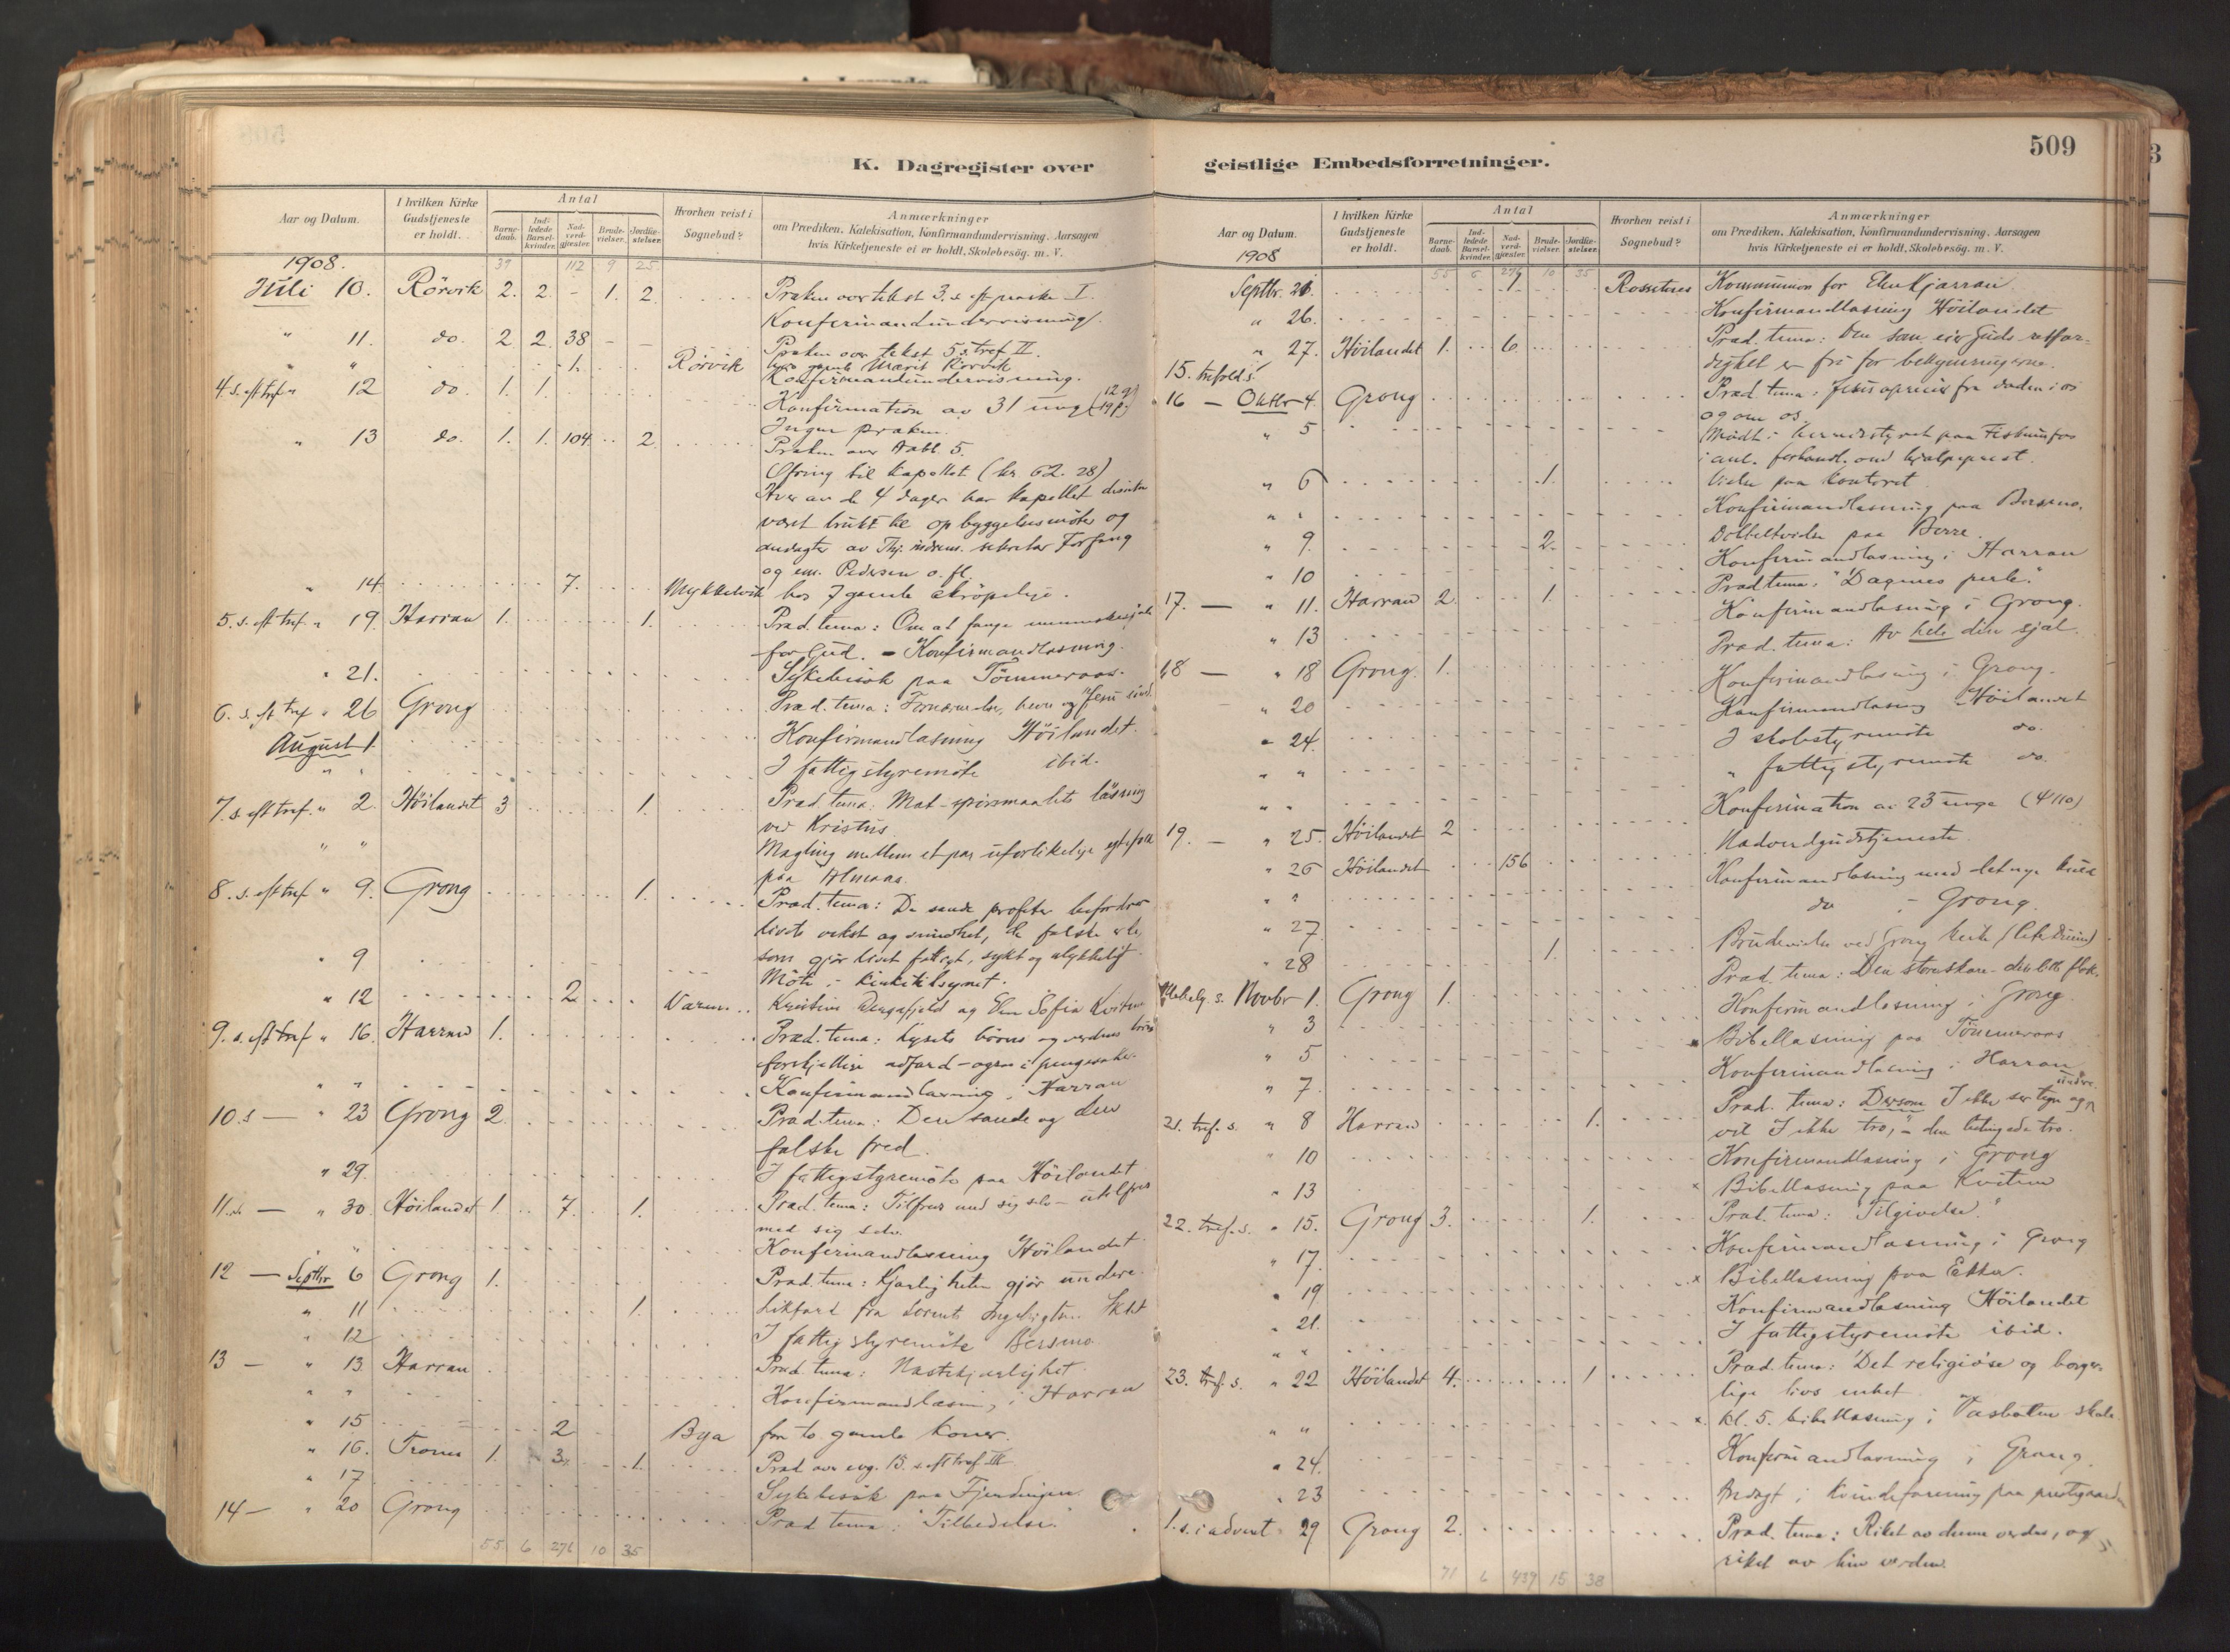 509
K. Dagregister over
geistlige Embedsforretninger.
Aar og Datum.
I hvilken Kirke Gudstjeneste er holdt.
Antal
Barne-daab. Ind-ledede Barsel-kvinder. Nad-verd-gjæster. Brude-vielser. Jordfæ-stelser.
Hvorhen reist i Sognebud?
Anmærkninger
om Prædiken, Katekisation, Konfirmandundervisning, Aarsagen
hvis Kirketjeneste ei er holdt, Skolebesög. m. V.
1908. 39 112 9 25
Juli 10. Rörvik 2. 2. - 1. 2. Præken over tekst 3. s. eft paaske I.
Konfirmandundervisning.
" 11. do. 2. 2. 38 - - Præken over tekst 5 s. tref II.
" " 1. Rörvik hos gamle Marit Rörvik
Konfirmandundervisning.
4. s. eft tref " 12 do. 1. 1. Konfirmation av 31 unge (12 g 19 p)
Ingen præken.
" 13 do. 1. 1. 104 2 Præken over Aabl. 5.
Ofring til kapellet (kr 62. 28)
Hver av de 4 dager har kapellet desuten
været brukt til opbyggelsesmöter og
andagter av Thj. indrem. sekretær Forfang
og em. Pedersen o. fl.
" 14. 7. Mykkelvik hos 7 gamle skröpelige.
5. s. eft tref. " 19. Harran 1. 1. Præd. tema: Om at fange menneskesjæle
for Gud. - Konfirmandlæsning.
" 21. Sykebesök paa Tömmeraas.
6. s. eft tref " 26 Grong Præd. tema: Fornærmelser, hevn og "Jesu sind.
August 1. Konfirmandlæsning Höilandet.
" " I fattigstyremöte ibid.
7. s. eft tref. " 2. Höilandet 3 1. Præd. tema: Mat-spörsmaalets läsning
ved Kristus.
" " Mægling mellem et par uforlikelige egtefolk
paa Almaas.
8. s. eft tref " 9. Grong 1. Præd. tema: De sande profeter befordrer
livets vekst og sundhet, de falske er de,
som gjör livet fattigt, sykt og ulykkelig.
" 9 Möte i kirketilsynet.
" 12 2. Kristine og Elen Sofia Kvitum
9. s. eft tref " 16. Harran 1. Præd. tema: Lysets börns og verdens börns
forskjellige adfærd - ogsaa i pengesaker.
" " Konfirmandlæsning i Harran
10. s — " 23 Grong 2. Præd. tema: Den sande og den
falske fred.
" 29. I fattigstyremöte paa Höilandet
11. s. — " 30. Höilandet 1. 7. 1. Præd. tema: Tilfreds med sig selv - utilfreds
med sig selv.
" " Konfirmandlæsning Höilandet
12 — Septbr 6 Grong 1. Præd. tema: Kjærligheten gjör undere.
" 11 1. Likfærd fra
" 12 I fattigstyremöte Bersmo
13 — " 13. Harran Præd. tema: Næstekjærlighet.
" " Konfirmandlæsning i Harran
" 15 2 Bya for to gamle koner.
" 16. Trones 1. 3. 1. Præd over evg. 13. s. eft tref III
" 17 Sykebesök paa Fjerdingen.
14 — " 20 Grong Præd tema: "Tilbedelse."
55 6 276 10 35
Aar og Datum.
I hvilken Kirke Gudstjeneste er holdt.
Antal
Barne-daab. Ind-ledede Barsel-kvinder. Nad-verd-gjæster. Brude-vielser. Jordfæ-stelser.
Hvorhen reist i Sognebud?
Anmærkninger
om Prædiken, Katekisation, Konfirmandundervisning, Aarsagen
hvis Kirketjeneste ei er holdt, Skolebesög. m. V.
1908 55 6 276 10 35
Septbr. 21. 1. Rosseteres Kommunion for Elen Kjærran
" 26. Konfirmandlæsning Höilandet
15. trefold s. " 27. Höilandet 1. 6. Præd. tema: Den som eier Guds retfær-
dighet er fri for bekymringerne.
16 — Oktbr 4. Grong Præd tema: Jesus opreiser fra döden i os
og om os.
" 5 Mödt i herredstyret paa Fiskumfos
i anl. forhandl. om hjælpeprest.
" 6 1. Vielse paa kontoret
" " Konfirmandlæsning paa Bersmo.
" 9. 2. Dobbeltvielse paa Berre.
" 10 Konfirmandlæsning i Harran
17. — " 11. Harran 2. 1. Præd tema: "Dagmes perle."
" 13 Konfirmandlæsning i Grong.
18 — " 18 Grong. 1. Præd. tema: Av hele din sjæl.
" 20 Konfirmandlæsning i Grong.
" 24. Konfirmandlæsning Höilandet
" " I skolestyremöte do.
" " " fattigstyremöte do.
19. — " 25. Höilandet 2 Konfirmation av 23 unge
" 26 Höilandet 156 Nadverdgudstjeneste
" " Konfirmandlæsning med det nye kuld
" 27 do - Grong.
" 28 1. Brudevielse ved Grong kirke
Allehelg. s. Novbr 1. Grong 1. Præd. tema: Den store skare - den lille flok.
" 3 Konfirmandlæsning i Grong
" 5 x Bibellæsning paa Tömmeraas
" 7. Konfirmandlæsning i Harran
21. tref. s. " 8 Harran 1. Præd. tema: Dersom I ikke ser tegn og undere
vil I ikke tro," - den betingede tro.
" 10 Konfirmandlæsning i Grong
" 13 x Bibellæsning paa Kvitum
22. tref. s. " 15. Grong 3. 1. Præd. tema: "Tilgivelse."
" 17. Konfirmandlæsning i Grong
" 19 x Bibellæsning paa Ekker.
" 21. Konfirmandlæsning Höilandet
" " I fattigstyremöte ibid.
23. tref. s. " 22 Höilandet 4. 1. Præd. tema: Det religiöse og borger-
lige livs enhet
" " x kl. 5. bibellæsning i skole
" 24. Konfirmandlæsning i Grong.
" 23 Andagt i kvindeforening paa prestgaarden
1. s. i advent " 29 Grong 2. Præd. tema: Riket av denne verden, og
riket av hin verden.
71 6 439 15 38